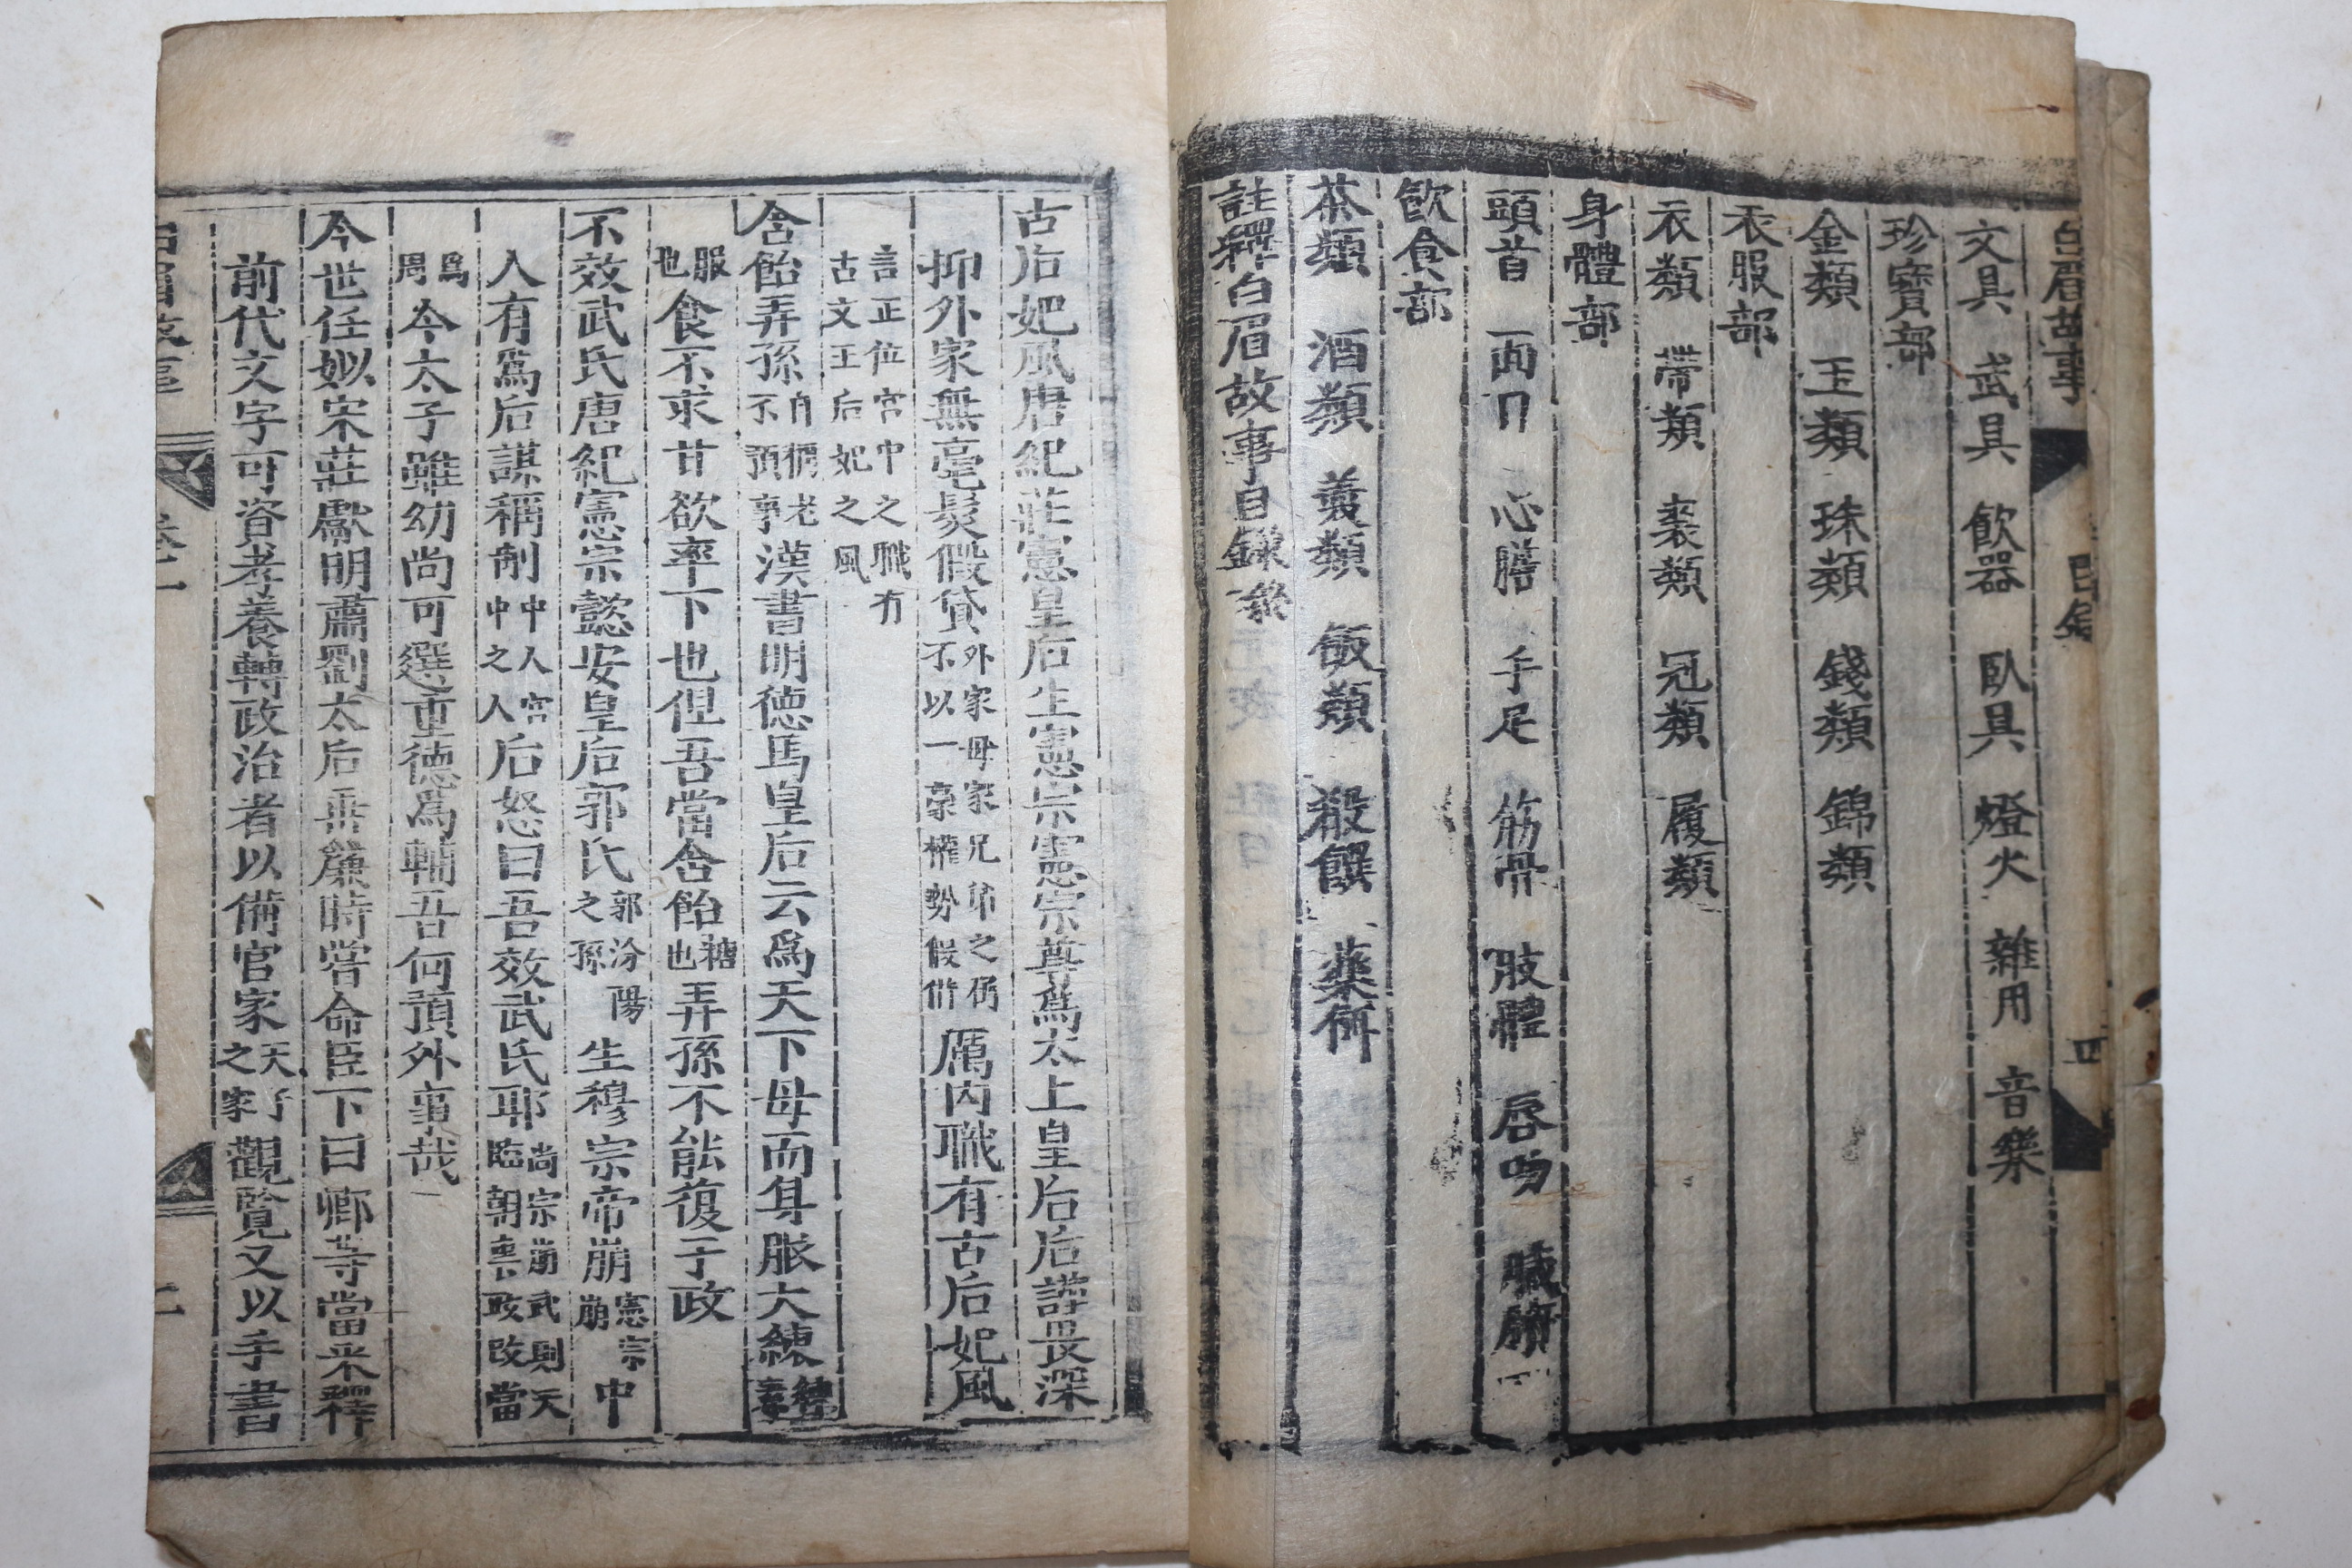 白眉故事 目錄
文具 武具 飲器 臥具 燈火 雜用 音樂
珍寶部
金類 玉類 珠類 錢類 錦類
衣服部
衣類 帶類 裘類 冠類 履類
身體部
頭首 面目 心膽 手足 筋骨 肢體 唇吻 臟腑
飲食部
茶類 酒類 羹類 飯類 殽饌 藥餌
註釋白眉故事目錄終
古后妃風唐紀莊憲皇后生憲宗憲宗尊爲太上皇后后謹畏深
抑外家無毫髮假貸外家母家兄弟之
不以一毫權勢假借厲內職有古后妃風
言正位宮中之職有
古文王后妃之風
含飴弄孫自稱老
不預事漢書明德馬皇后云爲天下母而身服大練
服
也食不求甘欲率下也但吾當含飴糖
也弄孫不能復于政
不效武氏唐紀憲宗懿安皇后郭氏郭汾陽
之孫生穆宗帝崩憲宗
崩中
人有爲后謀稱制中人宮
中之人后怒曰吾效武氏耶高宗崩武則天
臨朝專政改當
爲
周今太子雖幼尚可選重德爲輔吾何預外事哉
今世任姒宋莊獻明肅劉太后垂簾時嘗命臣下曰卿等當采釋
前代文字可資孝養轉政治者以備官家天子
之家觀覽又以手書
卷一 二